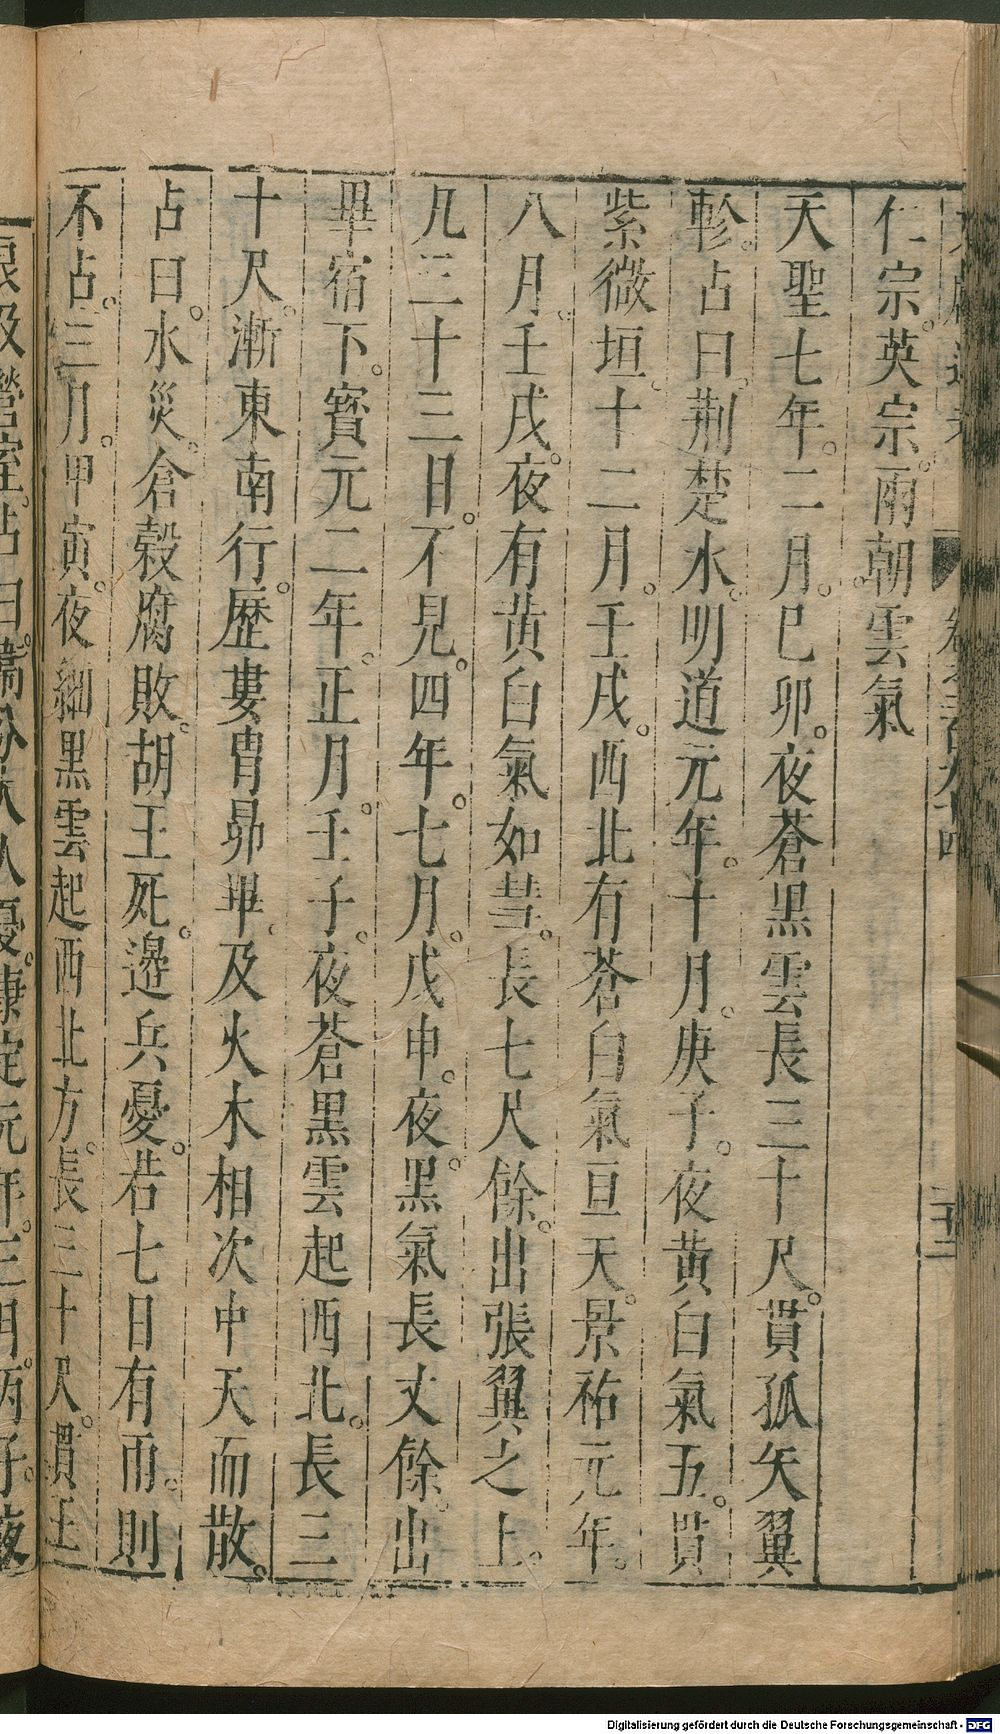 仁宗英宗。兩朝雲氣
天聖七年。二月。巳卯。夜蒼黑雲長三十尺。貫狐矢翼
軫。占曰。荆楚水。明道元年。十月。庚子。夜黃白氣五。貫
紫微垣。十二月。壬戌。西北有蒼白氣亘天。景祐元年。
八月。壬戌。夜有黃白氣如彗。長七尺餘。出張翼之上。
凡三十三日。不見。四年。七月。戊申。夜黑氣長丈餘。出
畢宿下。寶元二年。正月。壬子。夜蒼黑雲起西北。長三
十尺。漸東南行。歷婁胃昴畢。及火木相次中天而散。
占曰。水災。倉穀腐敗。胡王死。邊兵憂。若七日有雨。則
不占。三月。甲寅。夜細黑雲起西北方。長三十尺。貫王
營室。占曰。
人憂。康定元年。三月。丙子。夜
Digitalisierung gefördert durch die Deutsche Forschungsgemeinschaft - DFG